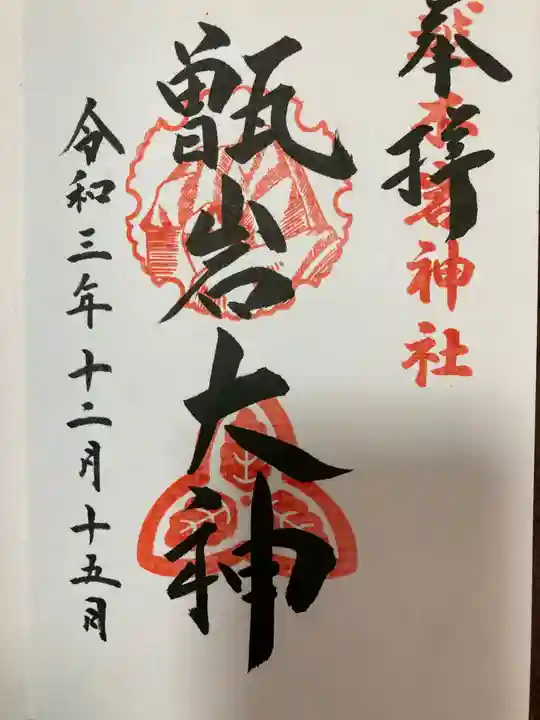 奉拝
越木岩神社
甑岩大神
令和三年十二月十五日